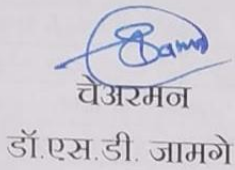 चेअरमन
डॉ.एस.डी. जामगे